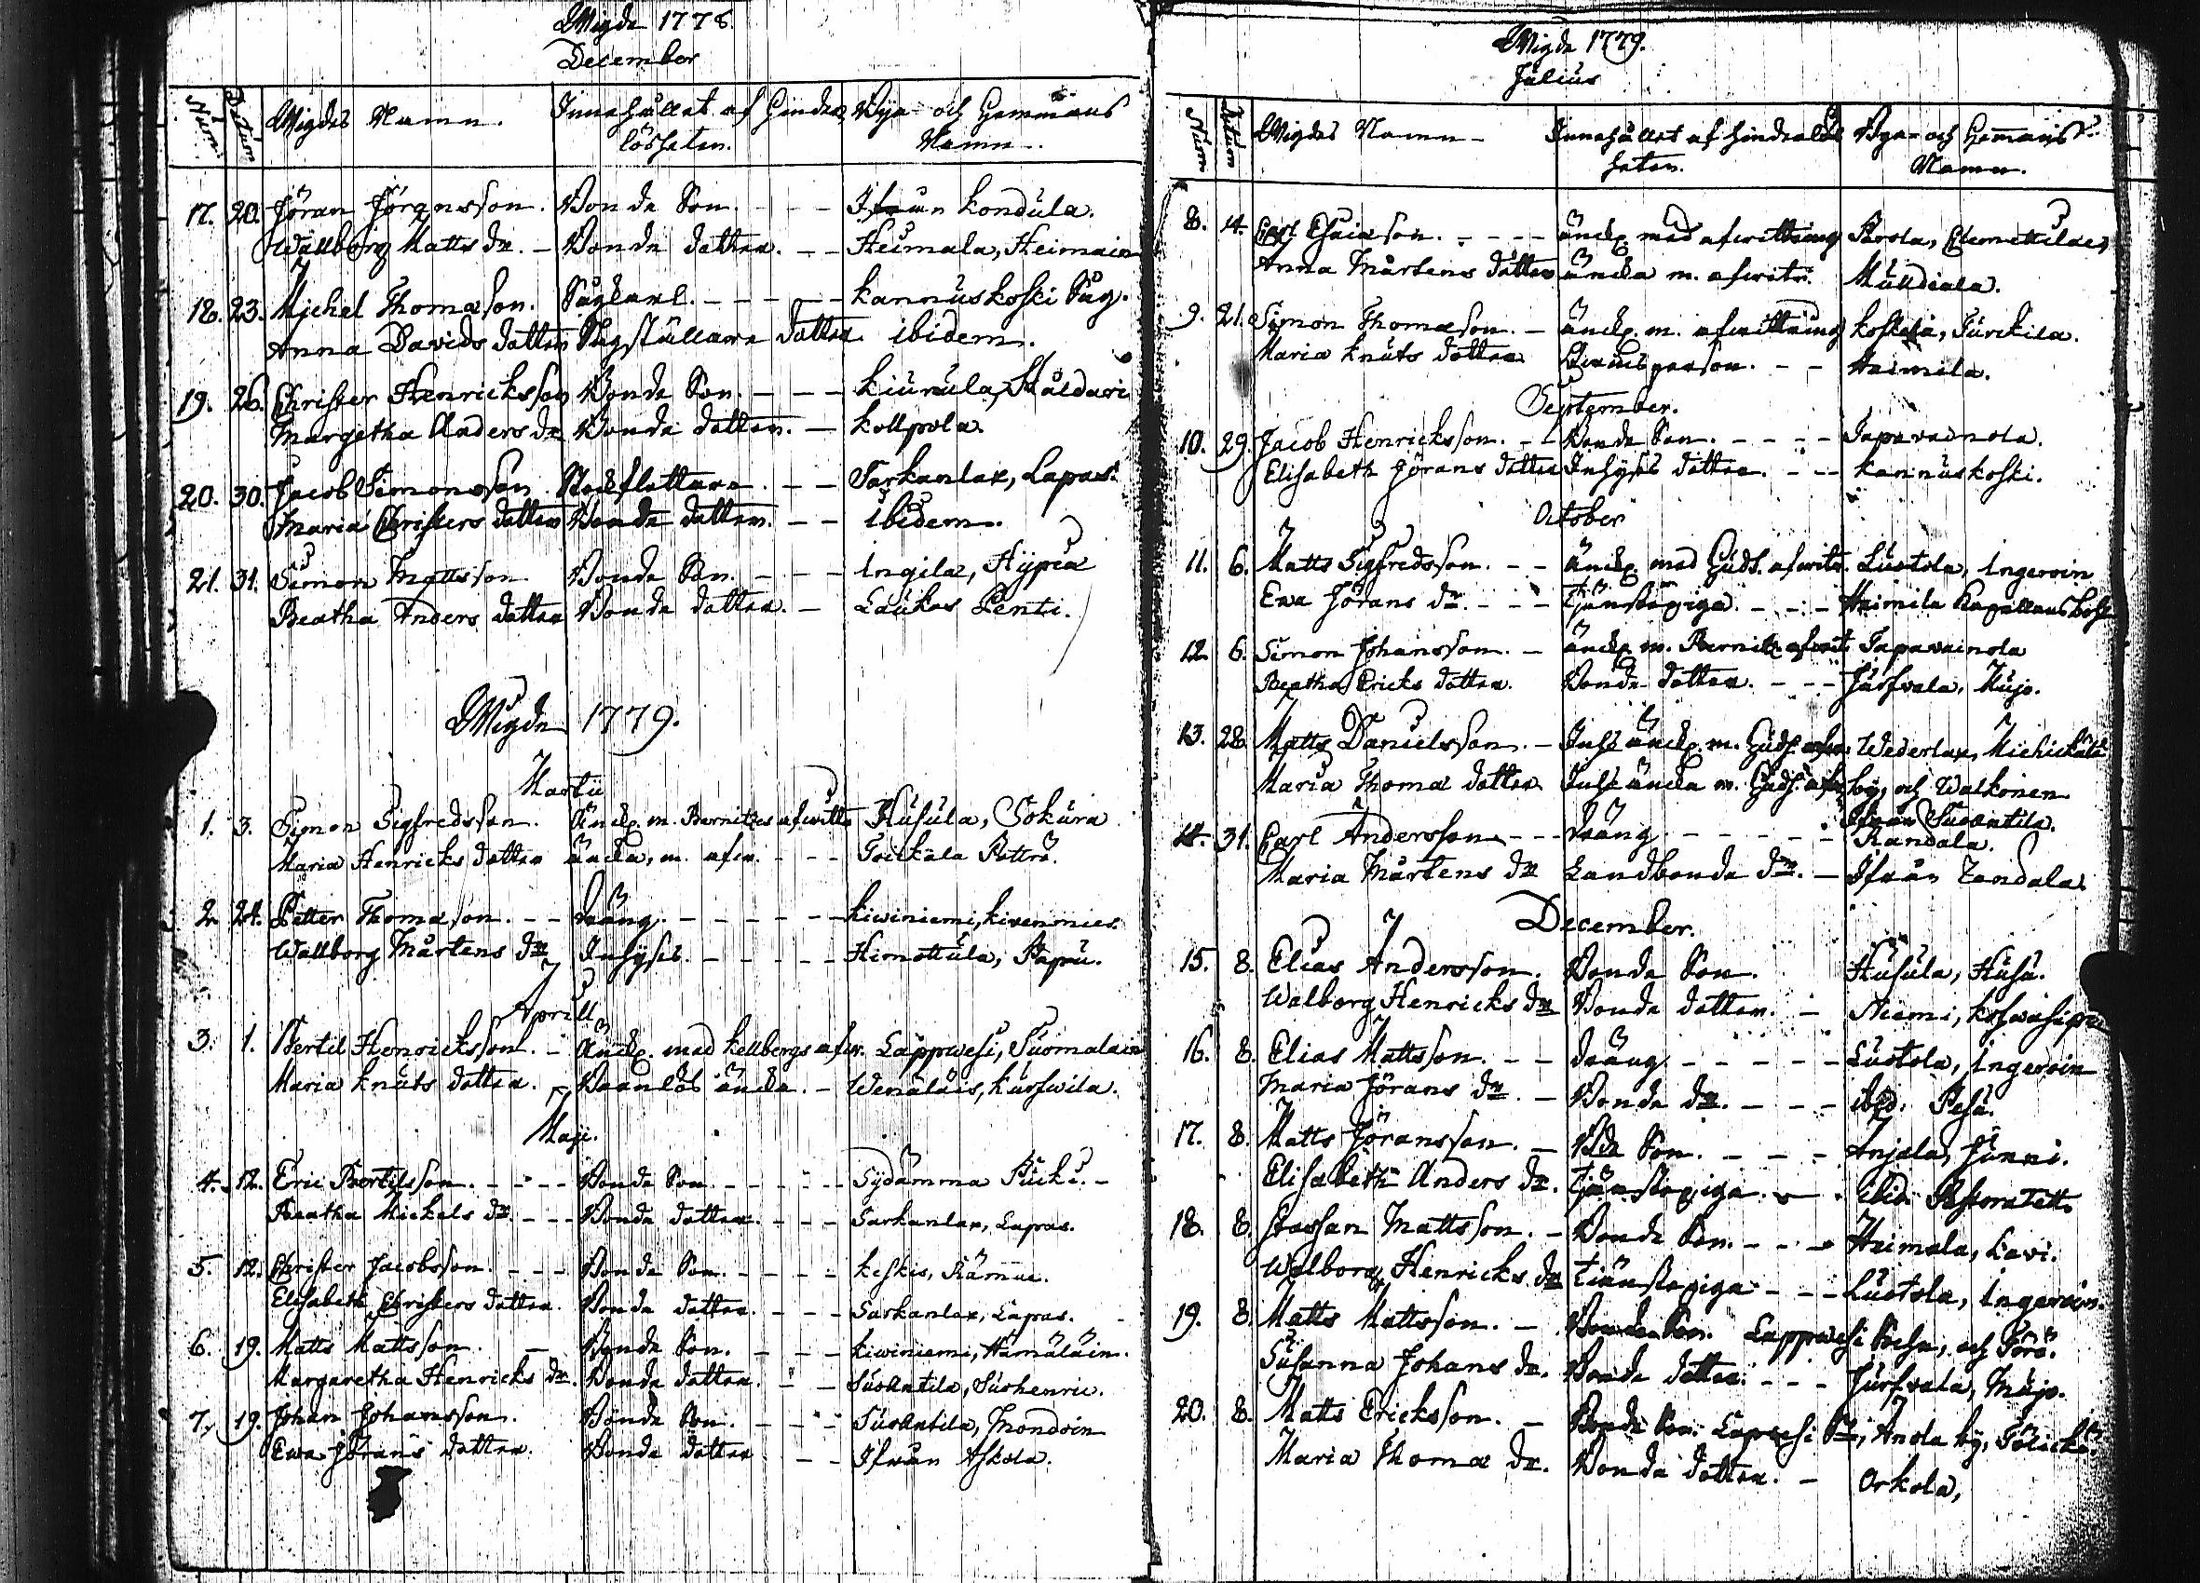 Wigde 1778.
December
Num. Datum Wigdes Namn. Innehållet af Hinders Bya- och Hemmans
lösheten. Namn.
17. 20. Jöran Jöransson. Bonde Son. Ifrån Kondula.
Wallborg Matts dr. Bonde dotter. Heimala, Heimain
18. 23. Michel Thomæson. Sågkarl. Kannuskoski Såg.
Anna Davids dotter Sågställare dotter ibidem.
19. 26. Christer Henricksson Bonde Son. Kiurula, Skäldari
Margetha Anders dr Bonde dotter. Kollpola.
20. 30. Jacob Simonsson Stockflottare Sarkanlax, Lapas.
Maria Christers dotter Bonde dotter. ibidem.
21. 31. Simon Mattsson Bonde Son. Ingila, Hypiä
Beatha Anders dotter Bonde dotter. Laukas Penti.
Wigde 1779.
Martii
1. 3. Simon Sigfredsson. Änckl. m. Bernitzes afwitt. Husula, Sokura
Maria Henricks dotter äncka, m. afw. Toickala Pottro.
2. 24. Petter Thomæson. dräng. Kiviniemi, Kivenmies.
Wallborg Mårtens dr Inhyses. Himottula, Papu.
Aprill
3. 1. Bertil Henricksson. Änckl. med Kellbergs afw. Lappwesi, Suomalain
Maria Knuts dotter. Barnlös äncka. Wenäläis, Kurfwila.
Maji.
4. 12. Eric Bertilsson. Bonde Son. Sydämma Pucki.
Beatha Michels dr. Bonde dotter. Sarkanlax, Lapas.
5. 12. Christer Jacobsson. Bonde Son. Keskis, Rämue.
Elisabeth Christers dotter. Bonde dotter. Sarkanlax, Lapas.
6. 19. Matts Mattsson. Bonde Son. Kiviniemi, Hämäläin.
Margaretha Henricks dr. Bonde dotter. Suoantila, Suohenric.
7. 19. Johan Johansson. Bonde Son. Suoantila, Mondoin
Ewa Jörans dotter. Bonde dotter Ifrån Askola.
Wigde 1779.
Julius
Num Datum Wigdes Namn Innehållet af hinderslös Bya- och Hemans
heten. Namn.
8. 14. Carl Esaiæson. änckl. med afwittring Pärola,
Anna Mårtens dotter äncka m. afwitr. Mulldiala.
9. 21. Simon Thomæson. änckl. m. afwittring Koskela, Turckila.
Maria Knuts dotter Heimila.
September.
10. 29. Jacob Henricksson. Bonde Son. Tapavainola.
Elisabeth Jörans dotter Inhyses dotter. Kannuskoski.
October
11. 6. Matts Sigfredsson. änckl. med Gudf. afwitr. Luotola, Ingeroin
Ewa Jörans dr. Tjänstepiga. Heimila Kapellansbost.
12. 6. Simon Johansson. änckl. m. Bernitz afwit. Tapavainola
Beatha Ericks dotter. Bonde dotter. Jurfvala, Mujo.
13. 28. Matts Danielsson. Inhs änckl. m. Gudf. afw. Wederlax, Michickälä
Maria Thomæ dotter Inhs äncka m. Gudf. afw. by, och Walkonen
Ifrån Suoantila.
14. 31. Carl Andersson dräng Randala.
Maria Mårtens dr Landbonde dr. Ifrån Zandala
December.
15. 8. Elias Andersson. Bonde Son. Husula, Husu.
Walborg Henricks dr Bonde dotter. Niemi,
16. 8. Elias Mattsson. dräng Luotola, Ingeroin
Maria Jörans dr. Bonde dr. ibid. Pesu.
17. 8. Matts Jöransson. Bde Son. Anjala, Junni.
Elisabeth Anders dr. Tjänstepiga. ibid. Pastoratett
18. 8. Staffan Mattsson. Bonde Son. Heimala, Lavi.
Walborg Henricks dr Tjänstepiga Luotola, Ingeroin.
19. 8. Matts Mattsson. Bonde Son. Lappwesi Sockn, och Törö.
Susanna Johans dr. Bonde dotter. Jurfvala, Mujo.
20. 8. Matts Ericksson. Bonde Son. Lapwesi Sn, Anola by, Tölickö
Maria Thomæ dr. Bonde dotter. Orkola,